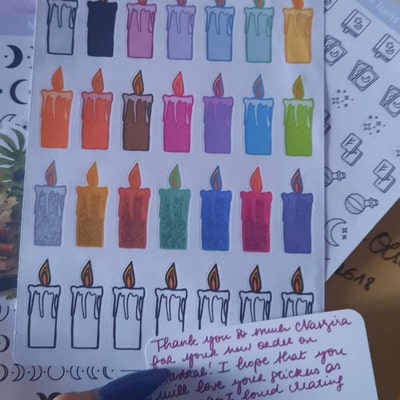 Thank you so much
for your new order on
! I hope that you
will love your stickers as
I loved creating
618